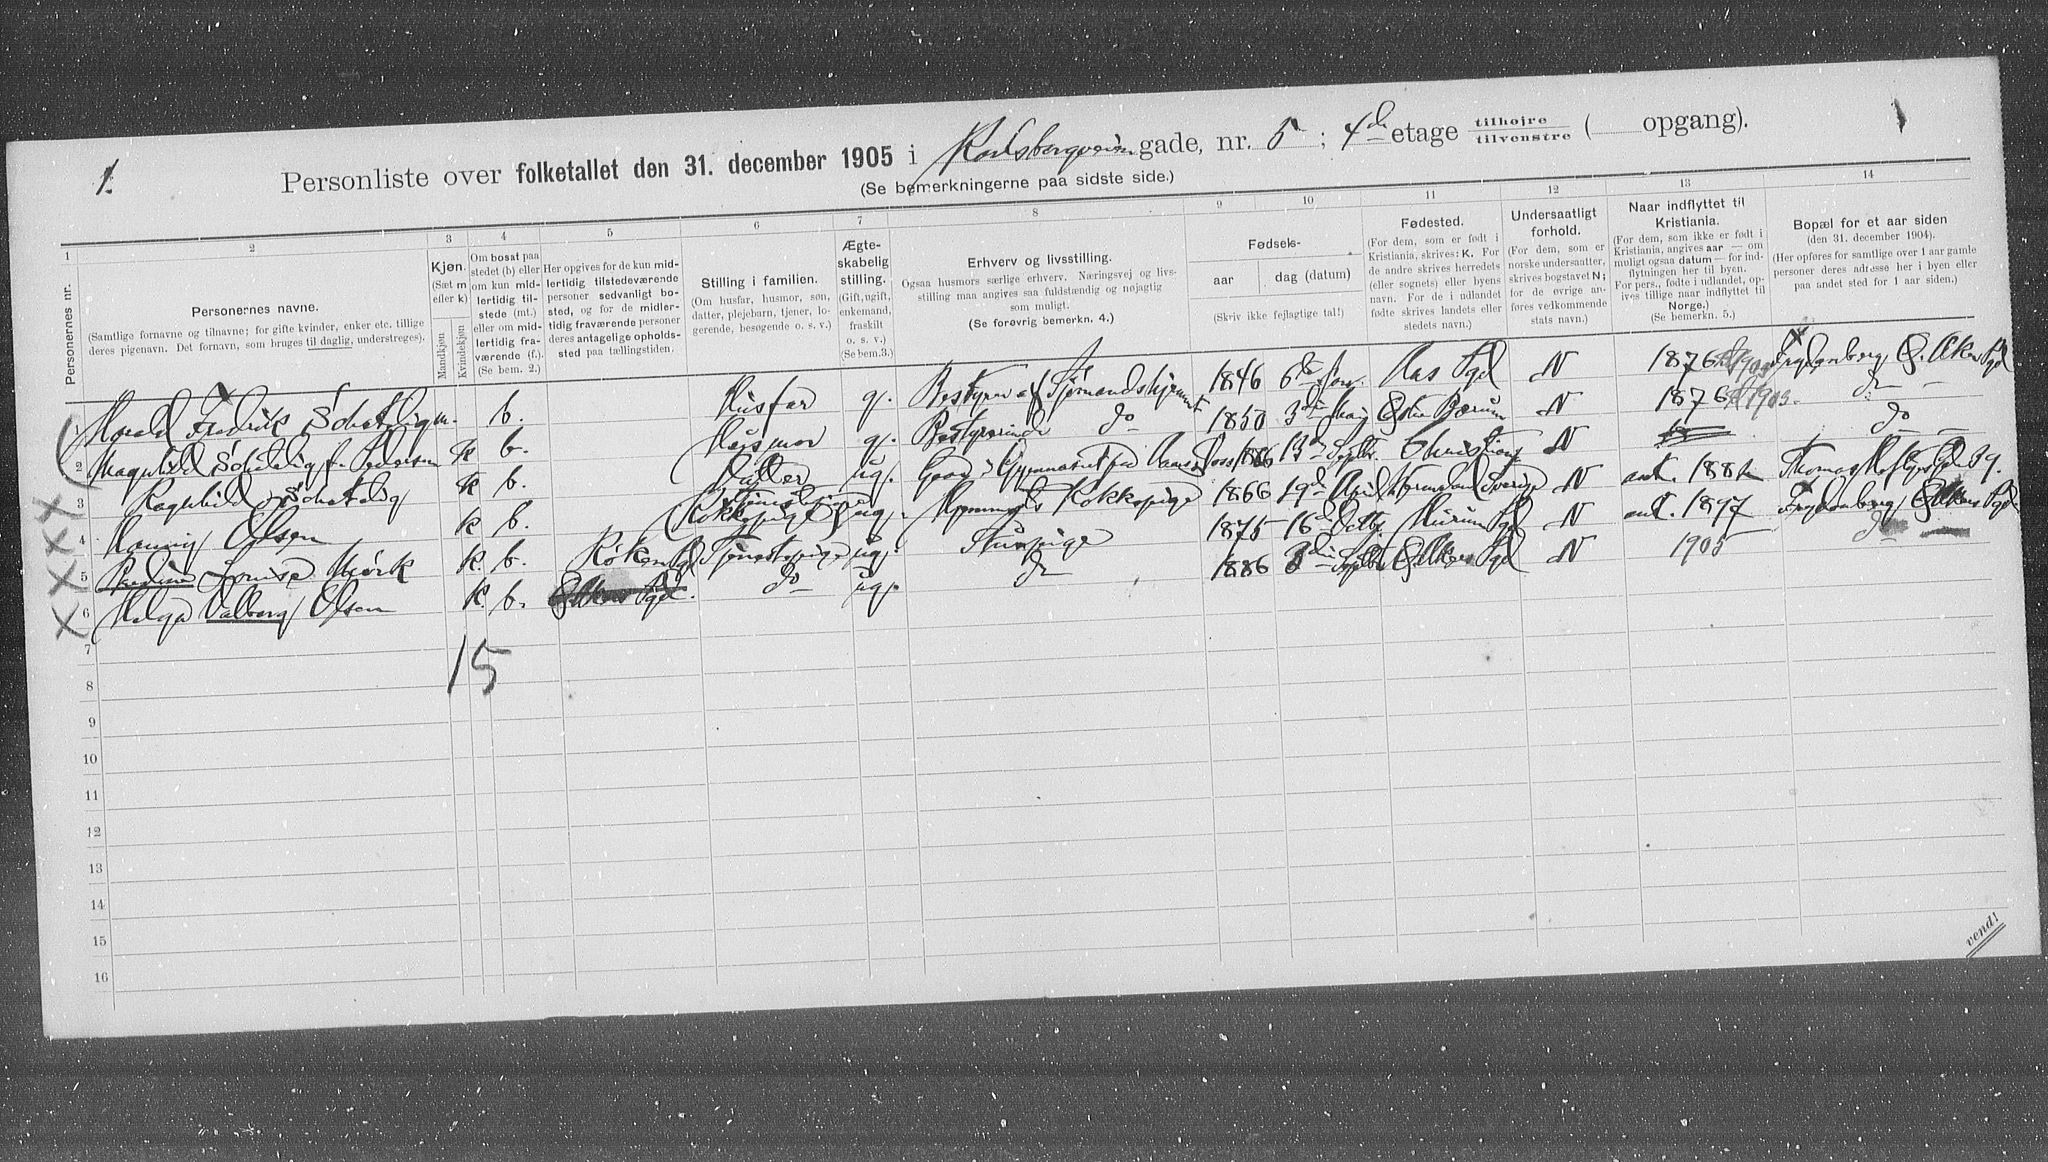 1. Personliste over folketallet den 31. december 1905 i gade, nr. 5; 4de etage tilhøjre / tilvenstre ( opgang). 1
(Se bemerkningerne paa sidste side.)
1 2 3 4 5 6 7 8 9 10 11 12 13 14
Personernes nr.
Personernes navne.
(Samtlige fornavne og tilnavne; for gifte kvinder, enker etc. tillige deres pigenavn. Det fornavn, som bruges til daglig, understreges).
Kjøn.
(Sæt m eller k)
Mandkjøn
Kvindekjøn
Om bosat paa stedet (b) eller om kun midlertidig tilstede (mt.) eller om midlertidig fraværende (f.).
(Se bem. 2.)
Her opgives for de kun midlertidig tilstedeværende personer sedvanligt bosted, og for de midlertidig fraværende personer deres antagelige opholdssted paa tællingstiden.
Stilling i familien.
(Om husfar, husmor, søn, datter, plejebarn, tjener, logerende, besøgende o. s. v.)
Ægteskabelig stilling.
(Gift, ugift, enkemand, fraskilt o. s. v.)
(Se bem. 3.)
Erhverv og livsstilling.
Ogsaa husmors særlige erhverv. Næringsvej og livsstilling maa angives saa fuldstændig og nøjagtig som muligt.
(Se forøvrig bemerkn. 4.)
Fødsels-
aar
dag (datum)
(Skriv ikke fejlagtige tal!)
Fødested.
(For dem, som er født i Kristiania, skrives: K. For de andre skrives herredets (eller sognets) eller byens navn. For de i udlandet fødte skrives landets eller stedets navn.)
Undersaatligt forhold.
(For dem, som er norske undersaatter, skrives bogstavet N; for de øvrige anføres vedkommende stats navn.)
Naar indflyttet til Kristiania.
(For dem, som ikke er født i Kristiania, angives aar — om muligt ogsaa datum — for indflytningen her til byen. For pers., fødte i udlandet, opgives tillige naar indflyttet til Norge.)
(Se bemerkn. 5.)
Bopæl for et aar siden
(den 31. december 1904).
(Her opføres for samtlige over 1 aar gamle personer deres adresse her i byen eller paa andet sted for 1 aar siden.)
1 Harald Fredrik Schetelig m. b. Husfar g. Bestyrer af Sjømandshjemmet 1846 6de Jan. Aas Pgd N 1876 1905 Frydenberg Ø. Aker Pgd
2 Magnhild Schetelig f. Pedersen k b. Husmor g. Bestyrerinde do 1850 3die Maj Østre Bærum N 1876 1905. do
3 Ragnhild Schetelig k b. Datter ug. 1886 13de Septbr. N do
4 Olsen k b. Kokkepige ug. Kokkepige 1866 19de April N ank. 1882
5 Lovise Mørk k. b. Røken Pgd Tjenestepige ug. Stuepige 1875 16de Octbr Hurum Pgd N ank. 1897 Frydenberg Ø. Akers Pgd
6 Helga Valborg Olsen k. b. Ø Akers Pgd. do ug. do 1886 3die Septbr Ø Akers Pgd N 1905 do
7
15
8
9
10
11
12
13
14
15
16
vend!